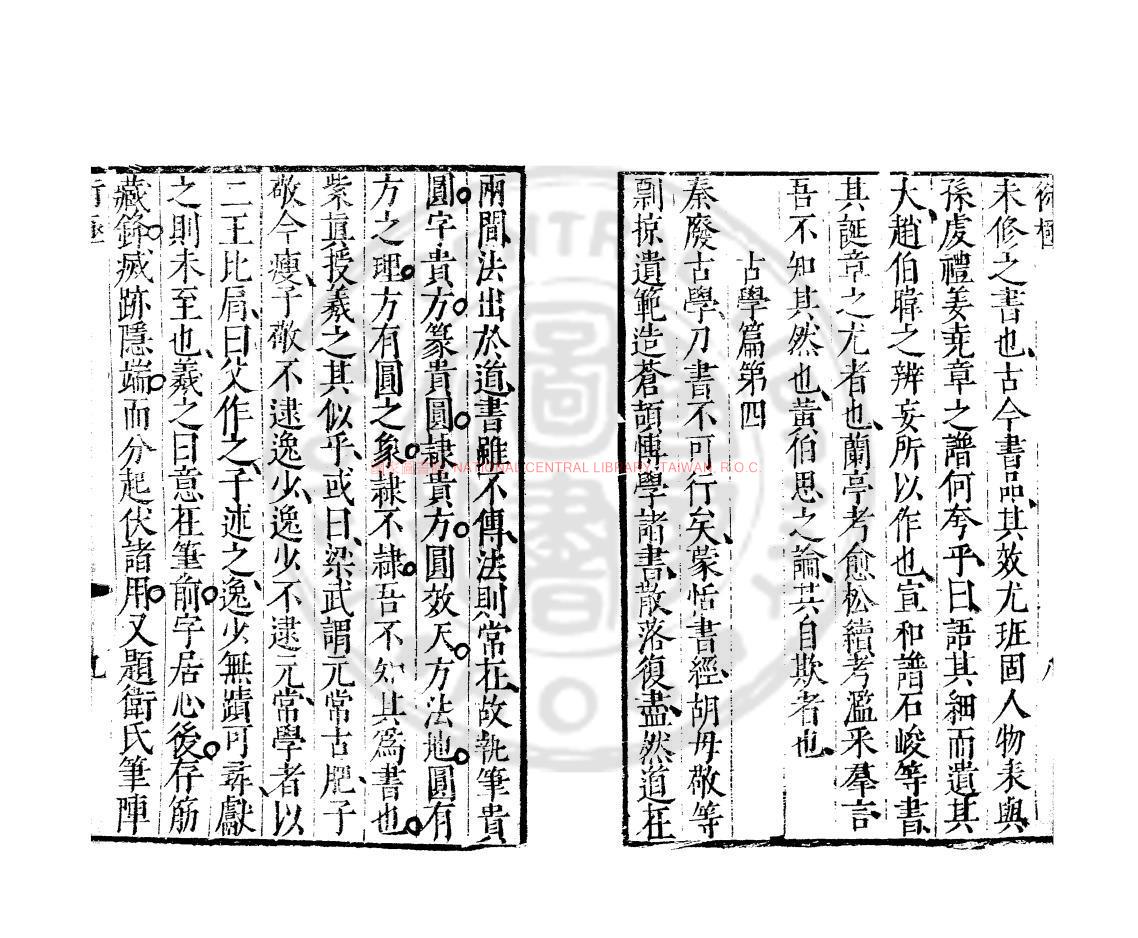 未修之書也古今書品其效尤班固人物表與
孫虔禮姜堯章之譜何夸乎曰語其細而遺其
大趙伯暐之辨妄所以作也宣和譜石峻等書
其誕章之尤者也蘭亭考愈松續考濫采羣言
吾不知其然也黃伯思之論其自欺者也
古學篇第四
秦廢古學刀書不可行矣蒙恬書經胡毋敬等
剽掠遺範造蒼頡傳學諸書散落復盡然道在
兩間法出於道書雖不傳法則常在故執筆貴
圓字貴方篆貴圓隸貴方圓效天方法地圓有
方之理方有圓之象隸不隸吾不知其爲書也
紫眞授羲之其似乎或曰梁武謂元常古肥子
敬今瘦子敬不逮逸少逸少不逮元常學者以
二王比肩曰父作之子述之逸少無蹟可尋獻
之則未至也羲之曰意在筆前字居心後存筋
藏鋒滅跡隱端而分起伏諸用又題衛氏筆陣
九
國家圖書館 NATIONAL CENTRAL LIBRARY, TAIWAN, R.O.C.